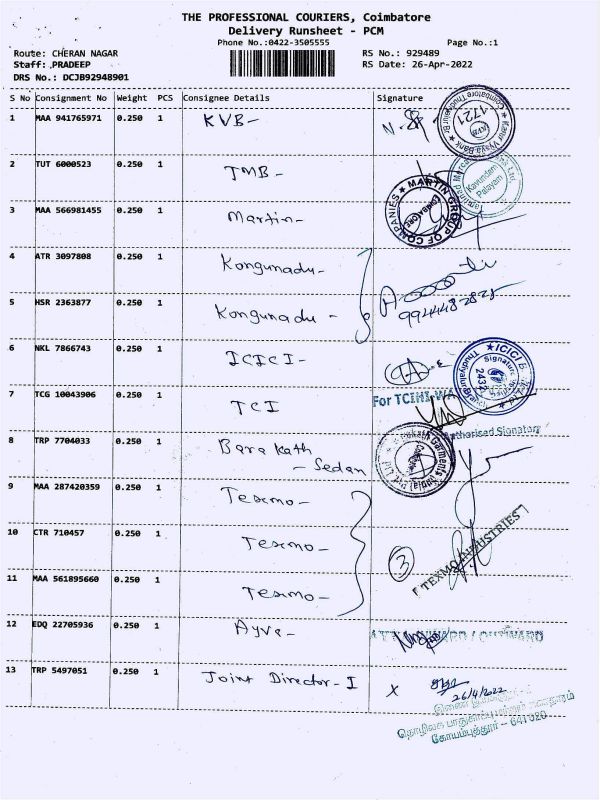 THE PROFESSIONAL COURIERS, Coimbatore
Delivery Runsheet - PCM
Phone No.:0422-3505555 Page No.:1
Route: CHERAN NAGAR RS No.: 929489
Staff: PRADEEP RS Date: 26-Apr-2022
DRS No.: DCJB92948901
S No Consignment No Weight PCS Consignee Details Signature
1 MAA 941765971 0.250 1 KVB-
1721
2 TUT 6000523 0.250 1 TMB-
Kavundam
Palayam
3 MAA 566981455 0.250 1 Martin-
MARTIN GROUP OF COMPANIES
COIMBATORE
4 ATR 3097808 0.250 1 Kongunadu-
5 HSR 2363877 0.250 1 Kongunadu-
9944482825
6 NKL 7866743 0.250 1 ICICI-
ICICI
Signature
2432
7 TCG 10043906 0.250 1 TCI
For TCI
Authorised Signatory
8 TRP 7704033 0.250 1 Barakath
- Sedan
Garments
9 MAA 287420359 0.250 1 Texmo-
10 CTR 710457 0.250 1 Texmo-
3
TEXMO INDUSTRIES
11 MAA 561895660 0.250 1 Texmo-
12 EDQ 22705936 0.250 1 Ayya-
13 TRP 5497051 0.250 1 Joint Director-I X
26/4/2022
கோயம்புத்தூர் - 641 020